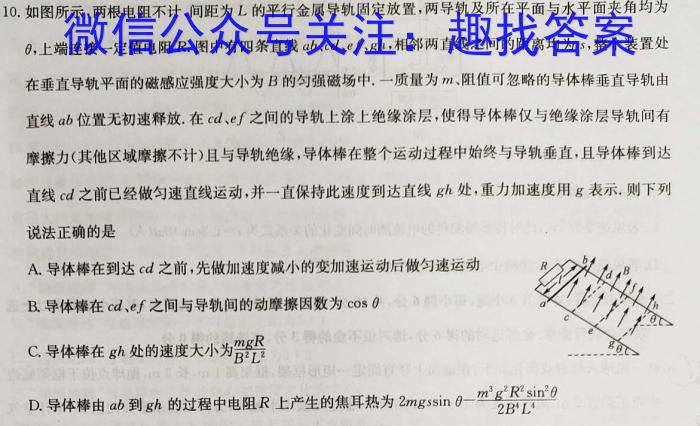 10. 如图所示,两根电阻不计、间距为 L 的平行金属导轨固定放置,两导轨及所在平面与水平面夹角均为
微信公众号关注：趣找答案
θ,上端连接一定值电阻R.图中有四条直线 ab、cd、ef、gh,相邻两直线之间的距离均为s,整个装置处
在垂直导轨平面的磁感应强度大小为 B 的匀强磁场中.一质量为 m、阻值可忽略的导体棒垂直导轨由
直线 ab 位置无初速释放.在 cd、ef 之间的导轨上涂上绝缘涂层,使得导体棒仅与绝缘涂层导轨间有
摩擦力(其他区域摩擦不计)且与导轨绝缘,导体棒在整个运动过程中始终与导轨垂直,且导体棒到达
直线 cd 之前已经做匀速直线运动,并一直保持此速度到达直线 gh 处,重力加速度用 g 表示.则下列
说法正确的是
A. 导体棒在到达 cd 之前,先做加速度减小的变加速运动后做匀速运动
B. 导体棒在 cd、ef 之间与导轨间的动摩擦因数为 cos θ
C. 导体棒在 gh 处的速度大小为 mgR/B²L²
D. 导体棒由 ab 到 gh 的过程中电阻 R 上产生的焦耳热为 2mgssin θ − m³g²R²sin²θ/2B⁴L⁴
R b d B f h
a c e g θ θ